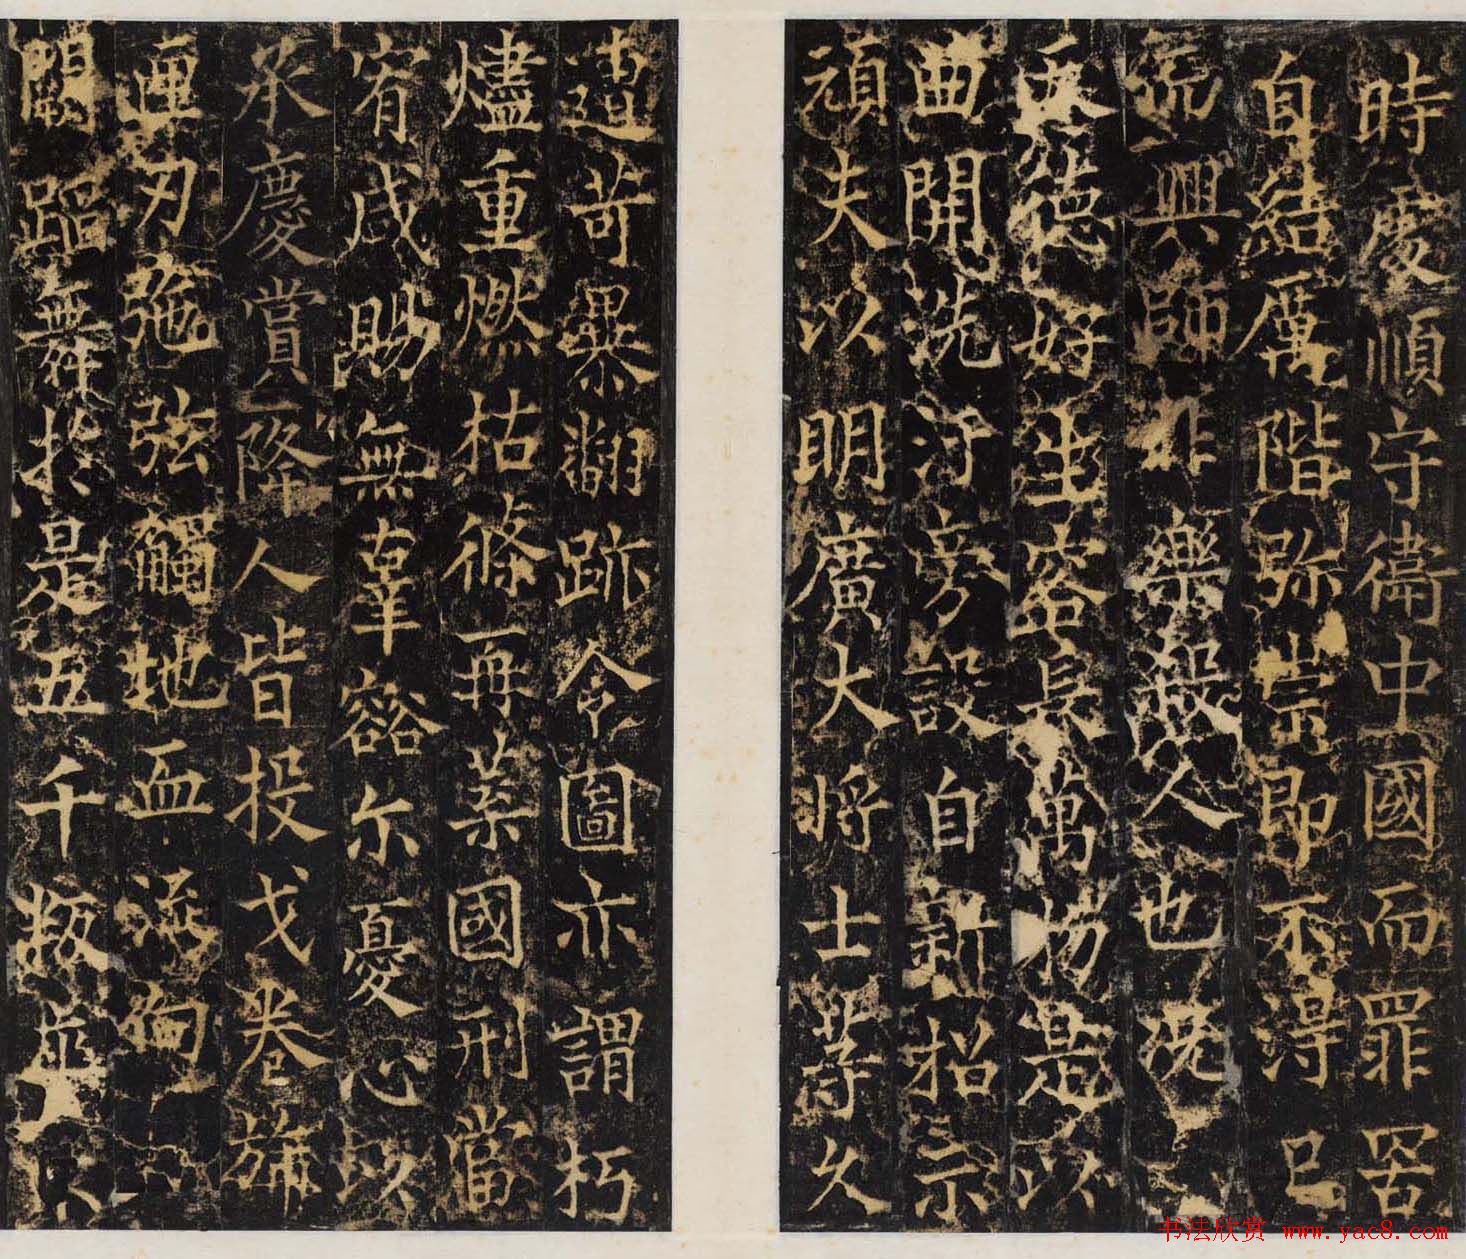 時慶順守衛中國而罪罟
自結厲階弥崇即不得已
興師非樂殺人也况
德好生長萬物是以
曲開洗汙旁設自新招宗
頑夫以明廣大將士等久
遭苛暴翻跡令圖亦謂朽
燼重燃枯條再榮國刑當
宥咸賜無辜豁尒憂心以
承慶賞降人皆投戈卷旆
匣刃弛弦觸地血流匍
闕蹈舞於是五千叛
书法欣赏 www.yac8.com